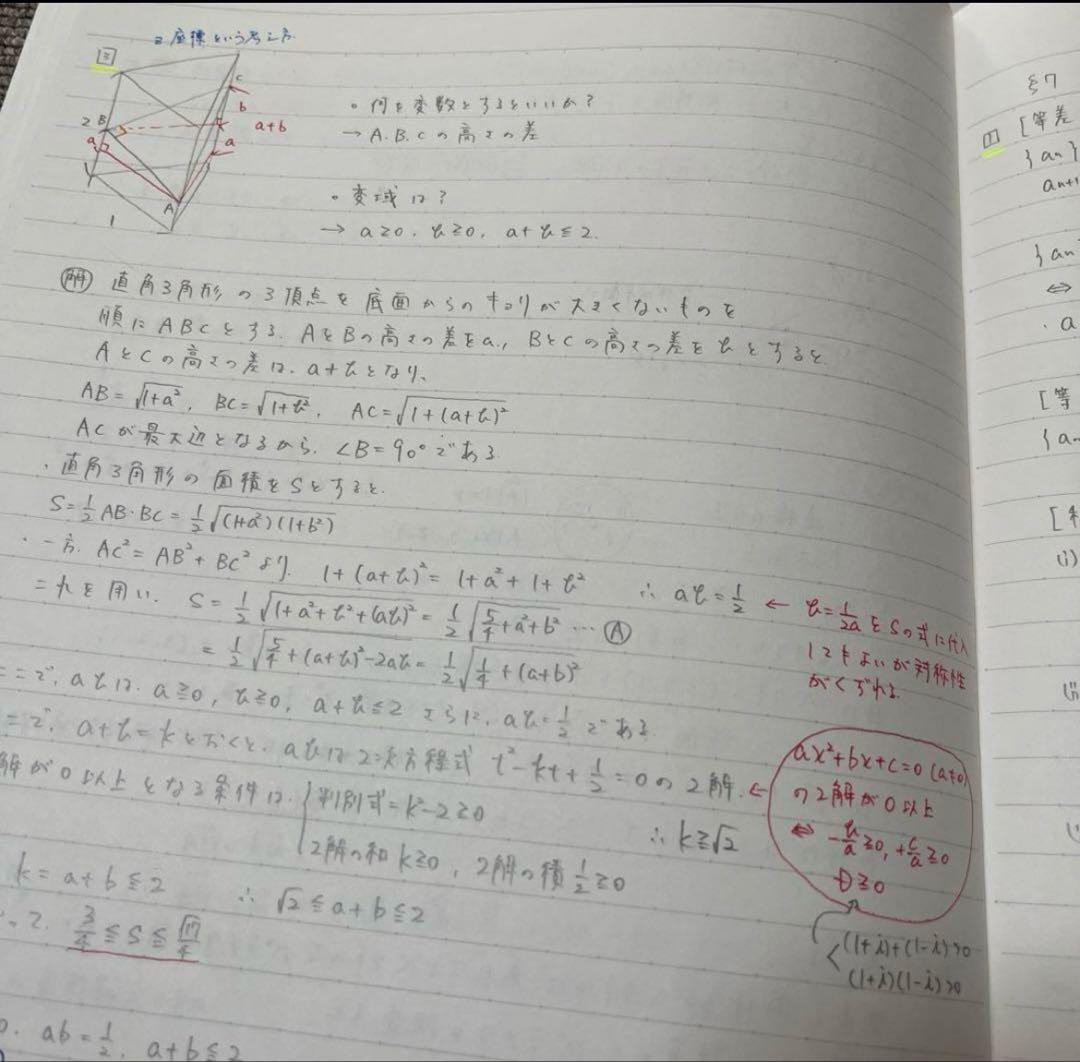 z座標という考え方
3
C
b
2
B
a+b
a
a
A
1
。何を変数とするといいか?
→ A.B.Cの高さの差
。変域は?
→ a≧0, b≧0, a+b≦2.
解 直角3角形の3頂点を底面からのキョリが大きくないものを
順にABCとする. AとBの高さの差をa, BとCの高さの差をbとすると.
AとCの高さの差は, a+bとなり、
AB=√(1+a²), BC=√(1+b²), AC=√(1+(a+b)²)
ACが最大辺となるから, ∠B=90°である
・直角3角形の面積をSとすると.
S=1/2 AB・BC=1/2√((1+a²)(1+b²))
・一方. AC²=AB²+BC²より. 1+(a+b)²=1+a²+1+b² ∴ ab=1/2 ← b=1/2a をSの式に代入
してもよいが対称性
がくずれる.
=れを用い. S=1/2√(1+a²+b²+(ab)²)=1/2√(5/4+a²+b²) … Ⓐ
=1/2√(5/4+(a+b)²-2ab)=1/2√(1/4+(a+b)²)
ここで, abは. a≧0, b≧0, a+b≦2 さらに, ab=1/2である.
=で, a+b=kとおくと. abは2次方程式 t²-kt+1/2=0の2解. ←
解が0以上となる条件は. { 判別式=k²-2≧0
2解の和k≧0, 2解の積1/2≧0
∴ k≧√2
ax²+bx+c=0 (a≠0)
の2解が0以上
⇔ -b/a≧0, +c/a≧0
D≧0
(1+i)+(1-i)>0
(1+i)(1-i)>0
k=a+b≦2 ∴ √2≦a+b≦2
3/4≦S≦√17/4
ab=1/2, a+b≦2
§7
1 [等差
{an}
an+1
{an
⇔
・a
[等
{a
[
(i)